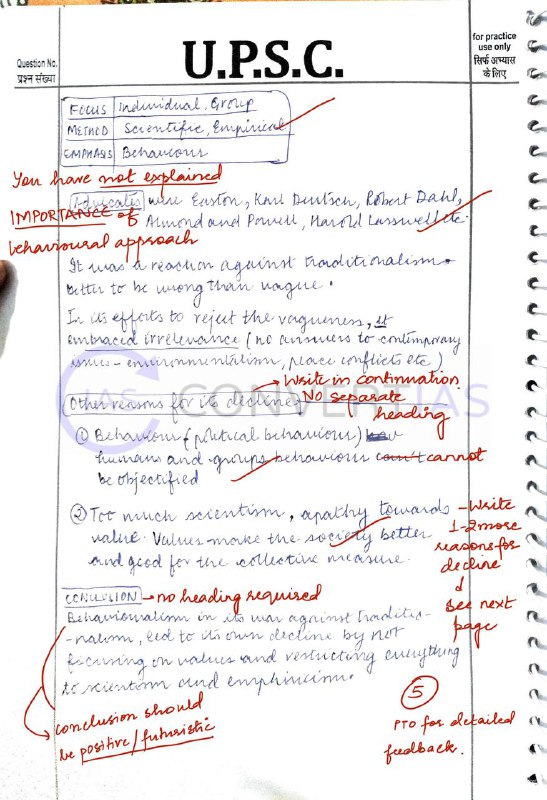 Question No.
प्रश्न संख्या
U.P.S.C.
for practice
use only
सिर्फ अभ्यास
के लिए
FOCUS Individual, Group
METHOD Scientific, Empirical
EMPHASIS Behaviour
You have not explained
IMPORTANCE of
behavioural approach
Advocates were Easton, Karl Deutsch, Robert Dahl,
Almond and Powell, Harold Lasswell etc.
It was a reaction against traditionalism.
better to be wrong than vague.
In its efforts to reject the vagueness, it
embraced irrelevance (no answers to contemporary
issues - environmentalism, peace conflicts etc)
CONVERT IAS
Write in continuation
NO separate
heading
Other reasons for its decline
① Behaviour (political behaviour)
humans and groups behaviour can't cannot
be objectified
② Too much scientism, apathy towards
value. Values make the society better
and good for the collective measure.
- Write
1-2 more
reasons for
decline
see next
page
CONCLUSION
no heading required
Behaviouralism in its war against traditio-
-nalism, led to its own decline by not
focusing on values and restricting everything
to scientism and emphiricism.
conclusion should
be positive/futuristic
5
PTO for detailed
feedback.